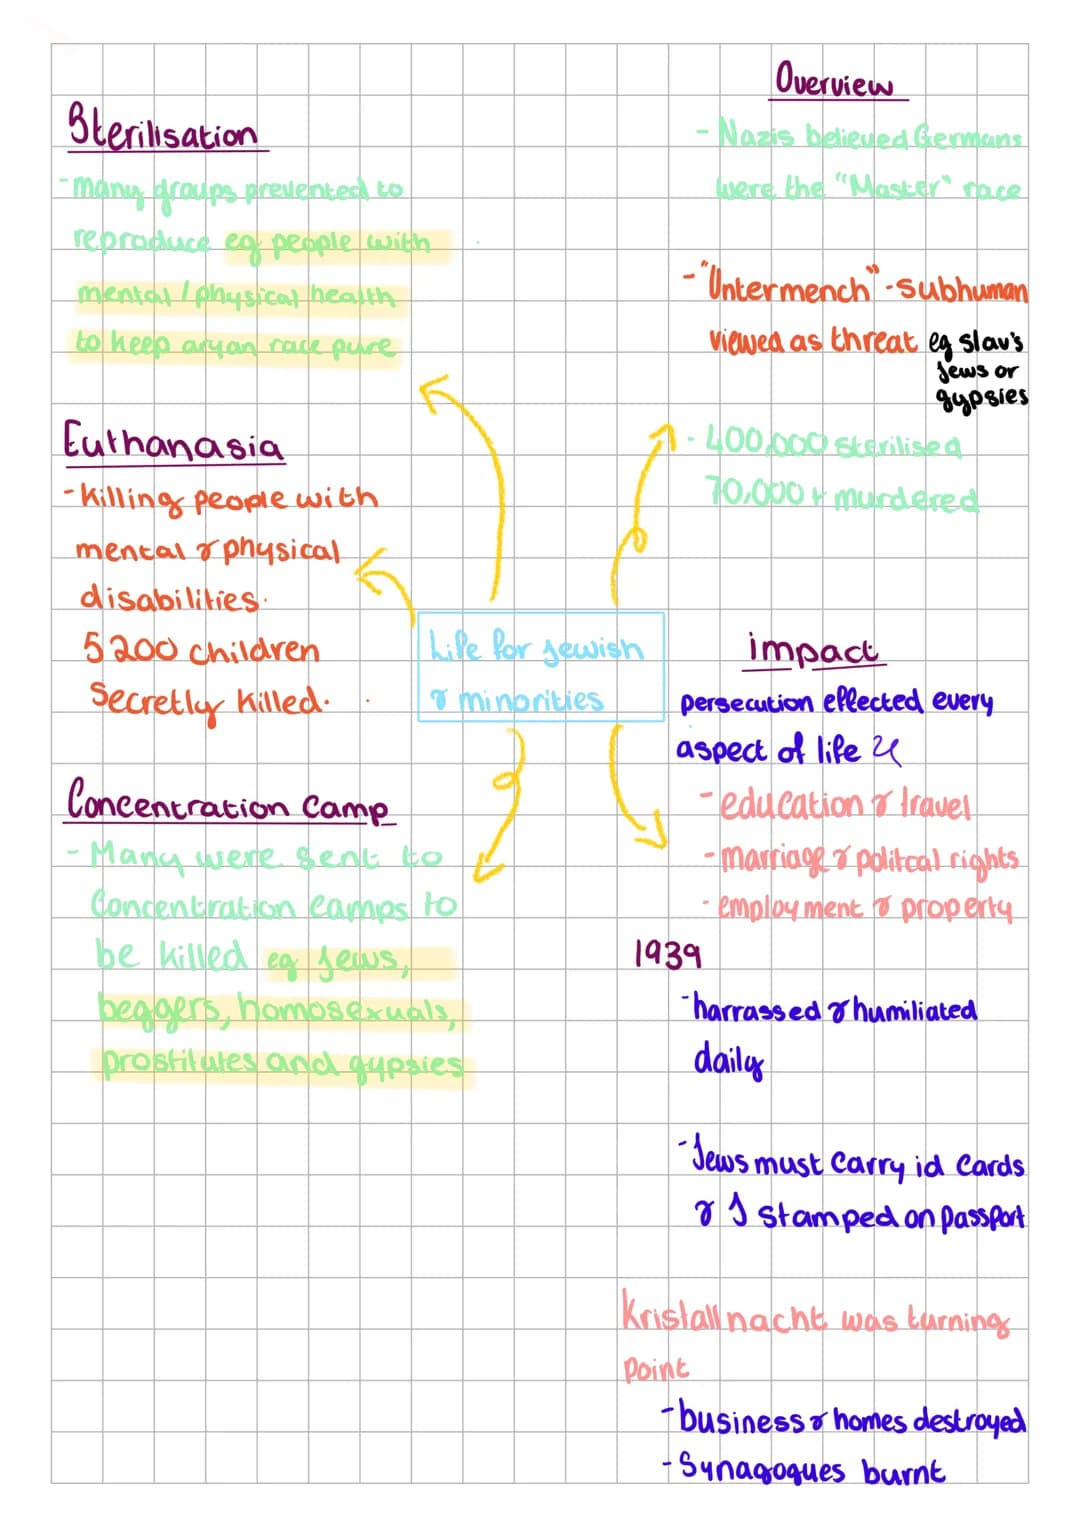 Sterilisation
- many groups prevented to
reproduce eg people with
mental / physical health
to keep aryan race pure
Euthanasia
- Killing people with
mental & physical
disabilities.
5200 children
Secretly killed.
Concentration Camp
- Many were sent to
Concentration Camps to
be killed eg Jews,
beggers, homosexuals,
prostitutes and gypsies
Life for Jewish
& minorities
Overview
- Nazis believed Germans
were the "Master" race
- "Untermench" - subhuman
viewed as threat eg slav's
Jews or
gypsies
- 400,000 sterilised
70,000+ murdered
impact
persecution effected every
aspect of life
- education & travel
- marriage & politcal rights
- employment & property
1939
- harrassed & humiliated
daily
- Jews must carry id cards
& J stamped on passport
Kristallnacht was turning
point
- business & homes destroyed
- Synagogues burnt